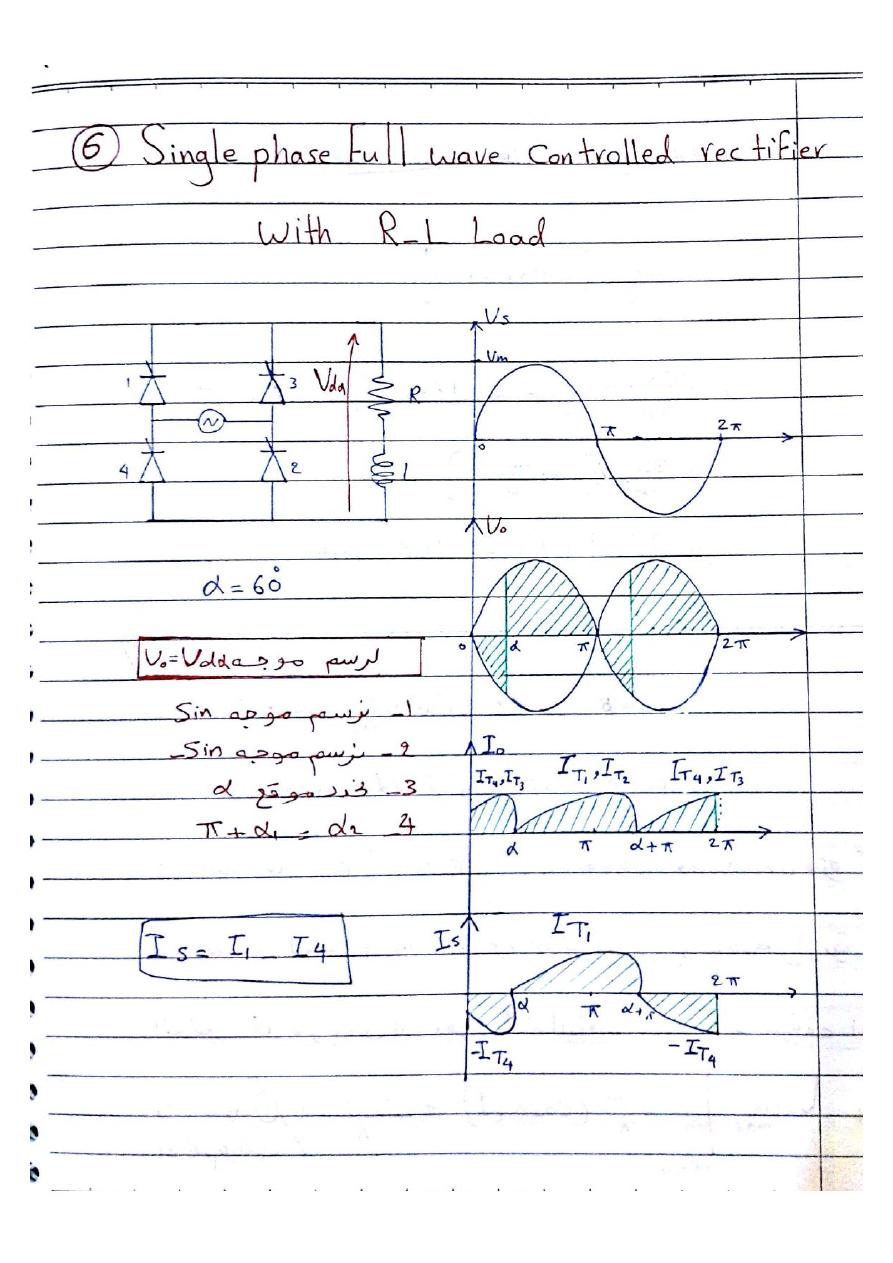 6 Single phase Full wave Controlled rectifier
With R-L Load
Vs
Vm
1
3
Vdα
R
π
2π
0
4
2
L
Vo
α = 60°
0
α
π
2π
لرسم موجه Vo=Vdα
1- نرسم موجه Sin
2- نرسم موجه -Sin
3- نحدد موقع α
4- α2 = α1 + π
Io
IT4,IT3
IT1,IT2
IT4,IT3
α
π
α+π
2π
Is = I1 - I4
Is
IT1
2π
α
π
α+π
-IT4
-IT4